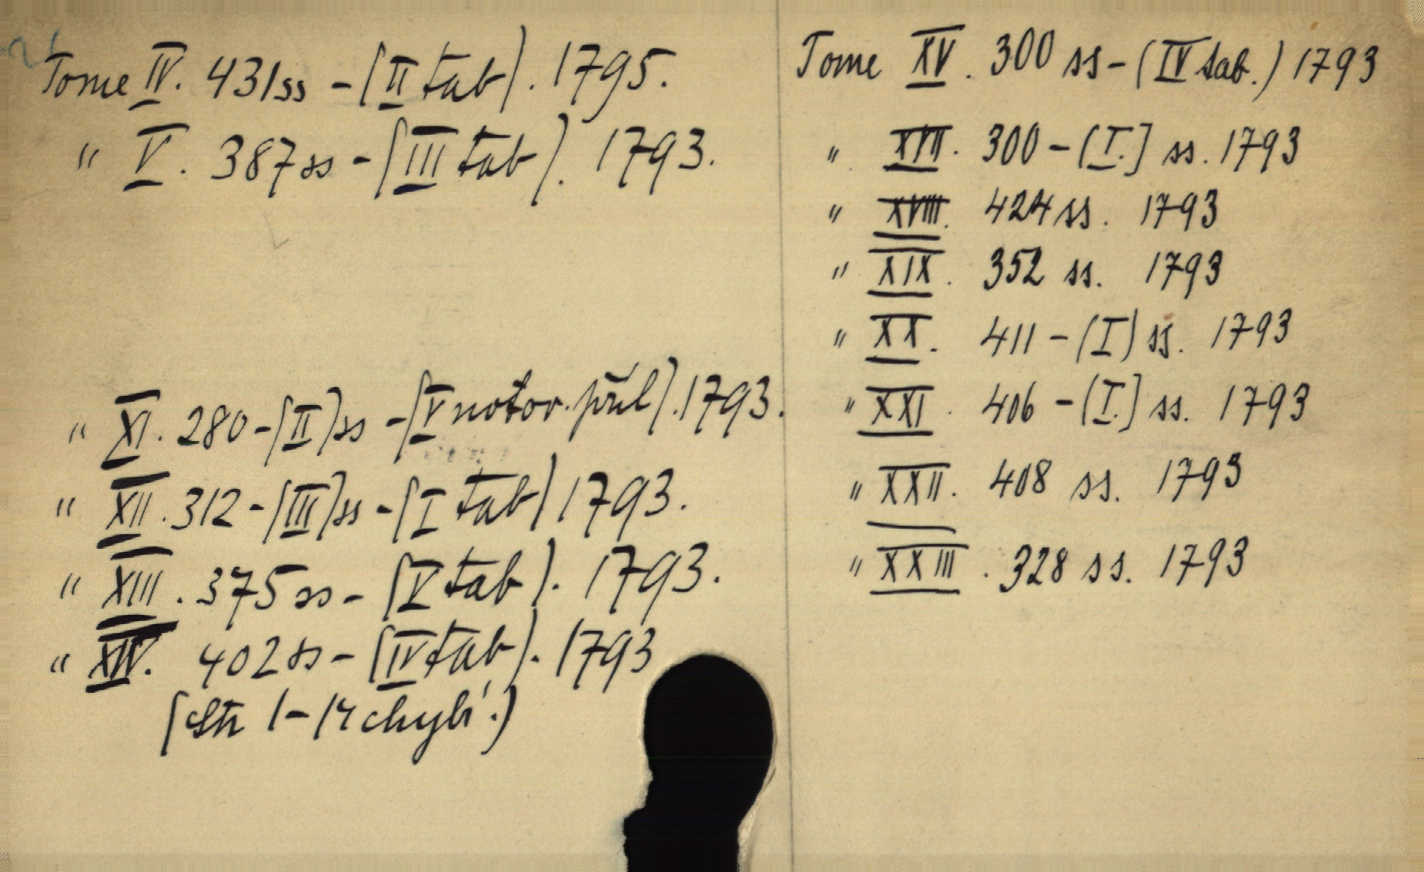 Tome IV. 431 ss - (II tab). 1795.
" V. 387 ss - (III tab). 1793.
" XI. 280 - (II) ss - (V notor. příl). 1793.
" XII. 312 - (III) ss - (I tab) 1793.
" XIII. 375 ss - (V tab). 1793.
" XIV. 402 ss - (IV tab). 1793
(str 1-14 chybí.)
Tome XV. 300 ss - (IV tab.) 1793
" XVII. 300 - (I.] ss. 1793
" XVIII. 424 ss. 1793
" XIX. 352 ss. 1793
" XX. 411 - (I) ss. 1793
" XXI. 406 - (I.] ss. 1793
" XXII. 408 ss. 1793
" XXIII. 328 ss. 1793